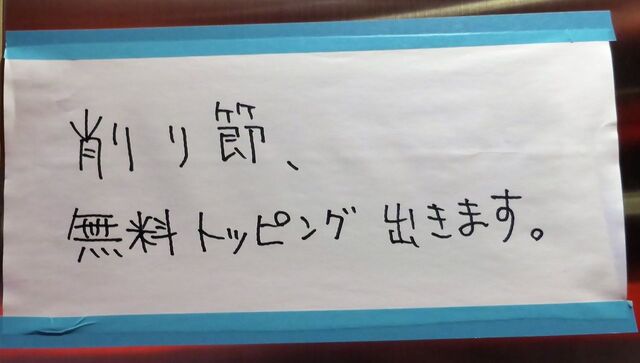 削り節、
無料トッピング出きます。